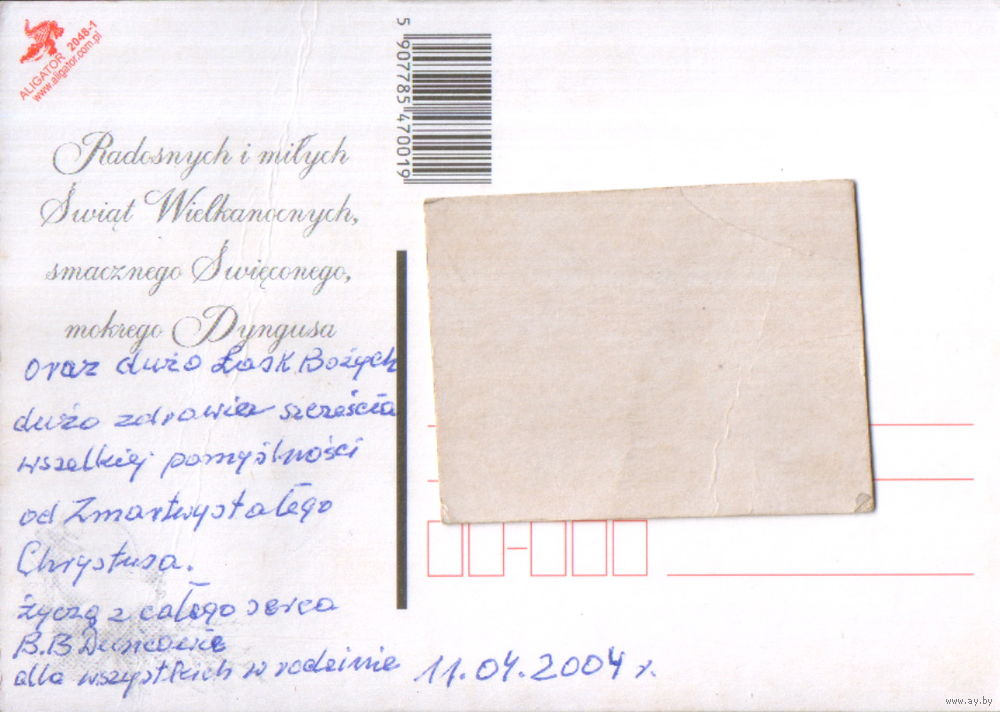 ALIGATOR 2048-1
www.aligator.com.pl
5 907785 470019
Radosnych i miłych
Świąt Wielkanocnych,
smacznego Święconego,
mokrego Dyngusa
oraz dużo Łask Bożych
dużo zdrowia szczęścia
wszelkiej pomyślności
od Zmartwystałego
Chrystusa.
życzą z całego serca
B.B
dla wszystkich w rodzinie
11.04.2004 r.
www.ay.by